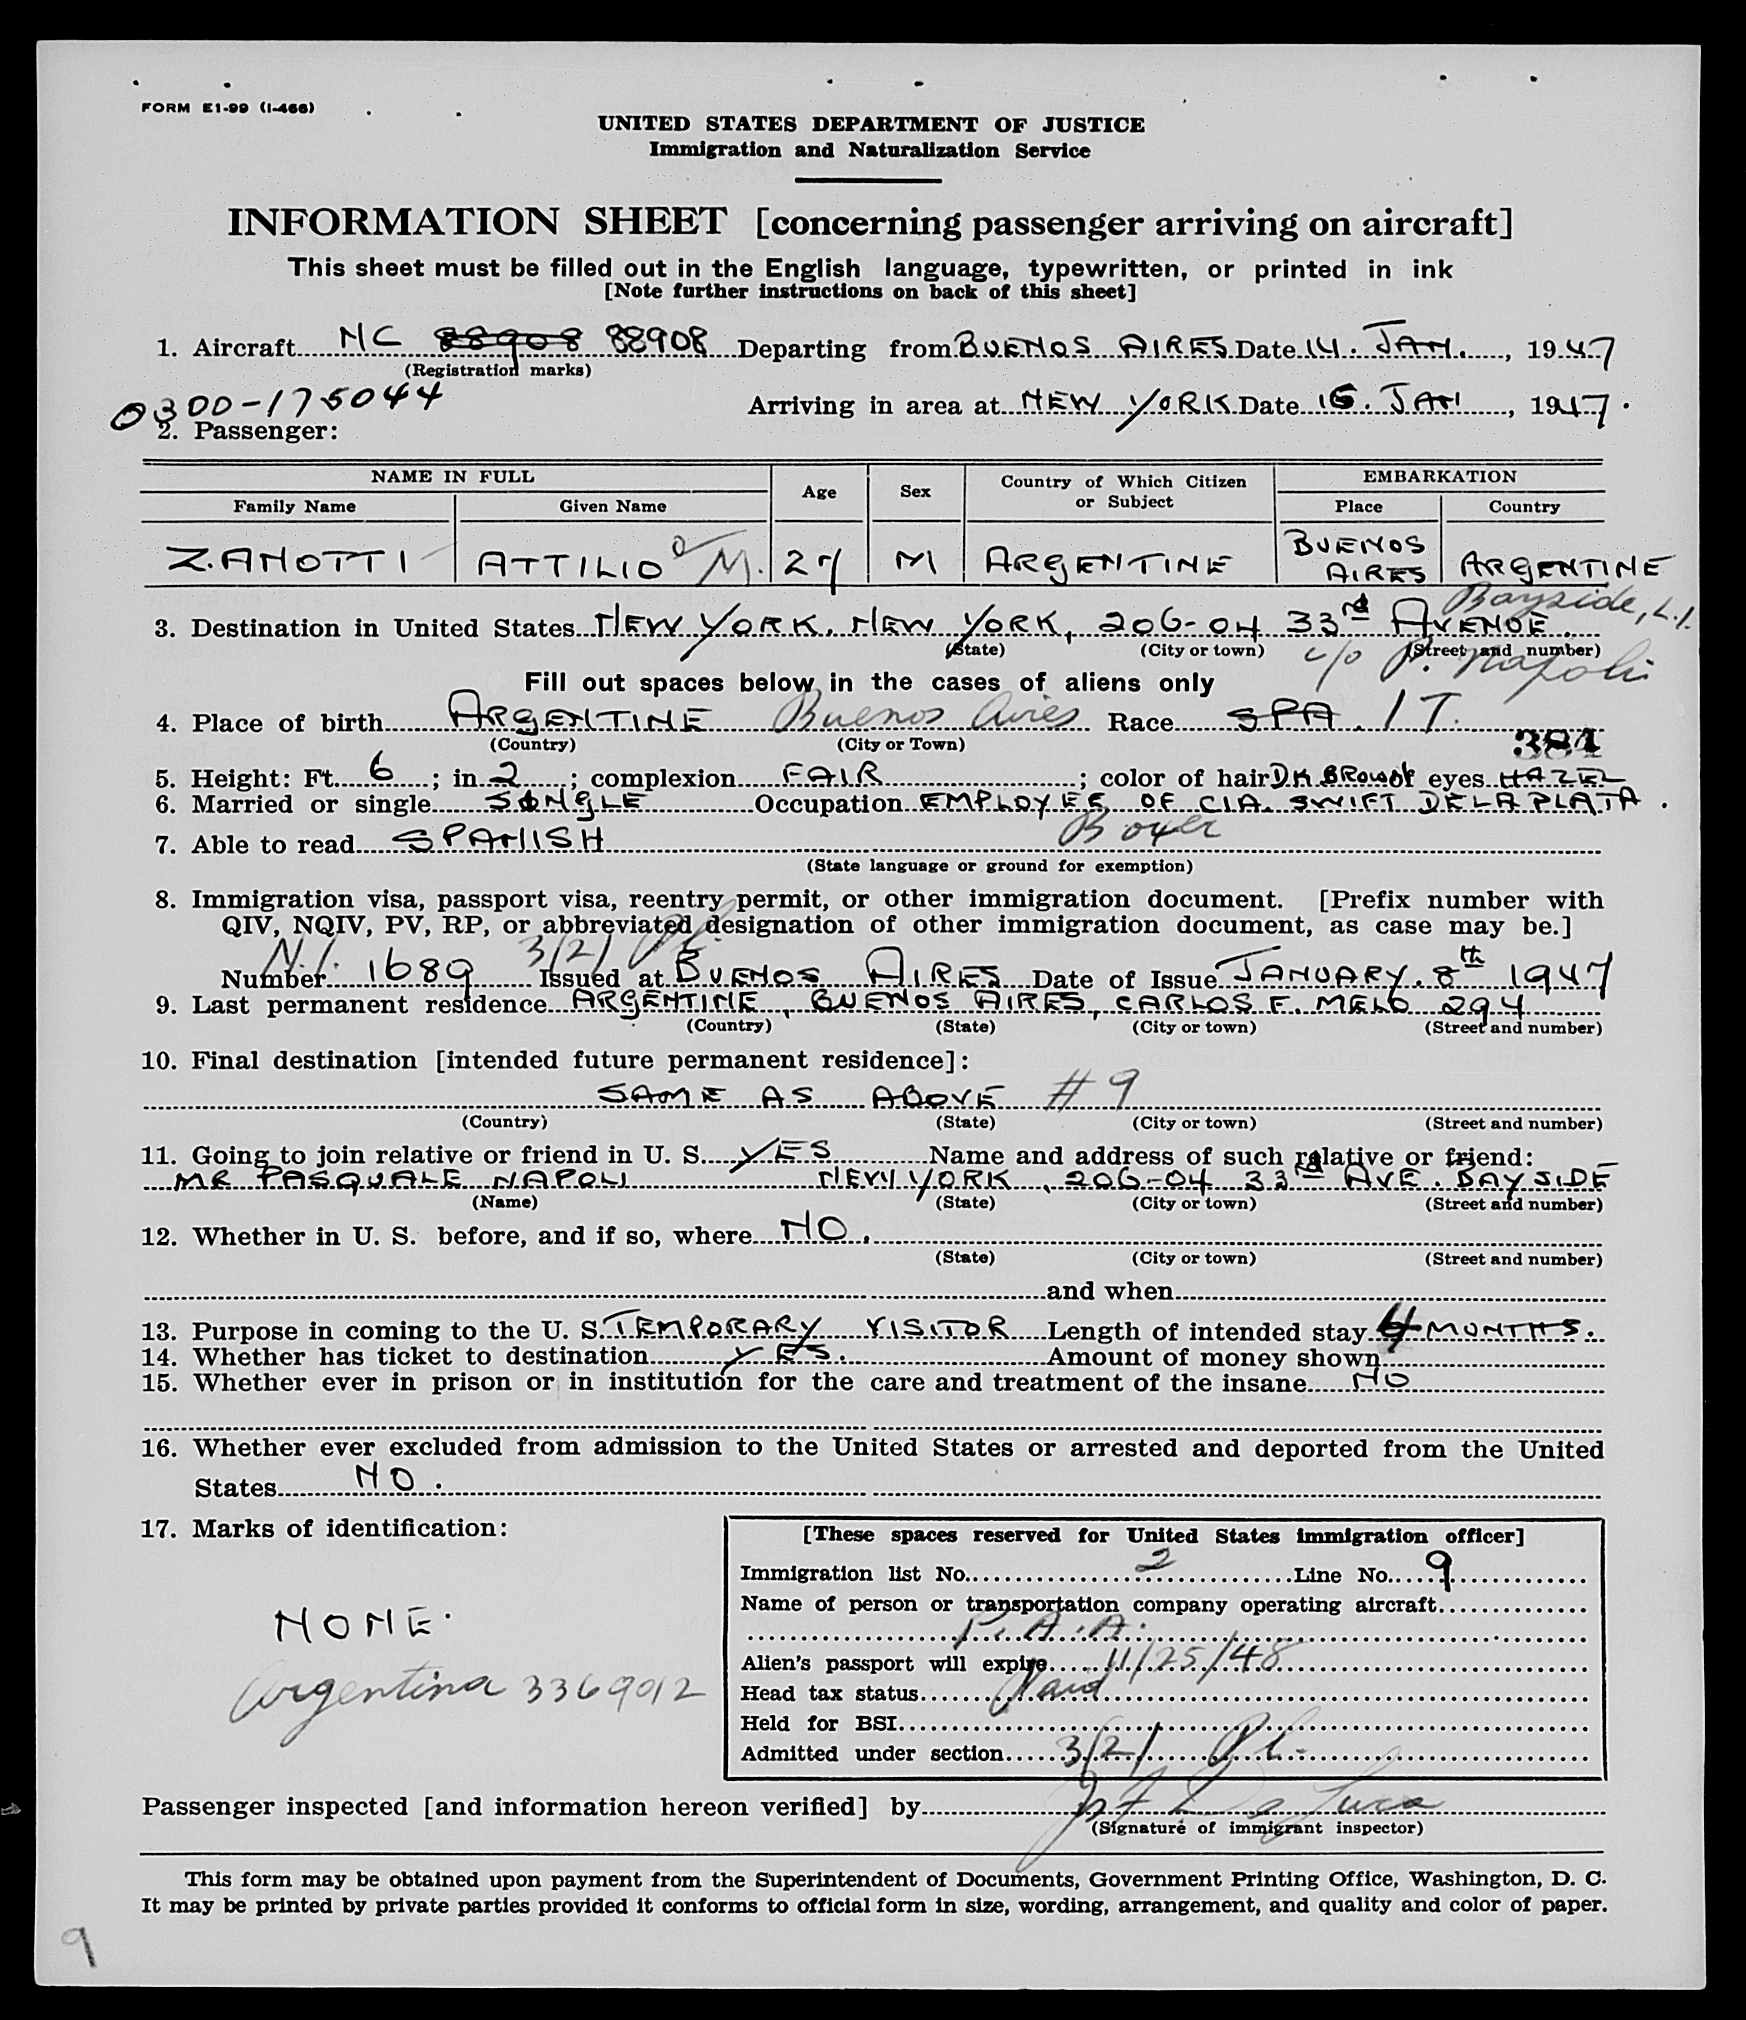 FORM E1-99 (I-466)
UNITED STATES DEPARTMENT OF JUSTICE
Immigration and Naturalization Service
INFORMATION SHEET [concerning passenger arriving on aircraft]
This sheet must be filled out in the English language, typewritten, or printed in ink
[Note further instructions on back of this sheet]
1. Aircraft NC 88908 88908 Departing from BUENOS AIRES Date 14. JAN. , 1947
(Registration marks)
0300-175044
Arriving in area at NEW YORK Date 16. JAN , 1947.
2. Passenger:
NAME IN FULL Age Sex Country of Which Citizen or Subject EMBARKATION
Family Name Given Name Place Country
ZANOTTI ATTILIO M. 27 M ARGENTINE BUENOS AIRES ARGENTINE
Bayside, L.I.
3. Destination in United States NEW YORK. NEW YORK, 206-04 33rd AVENUE.
(State) (City or town) (Street and number)
c/o P. Napoli
Fill out spaces below in the cases of aliens only
4. Place of birth ARGENTINE Buenos Aires Race SPA. IT.
(Country) (City or Town)
381
5. Height: Ft. 6 ; in. 2 ; complexion FAIR ; color of hair DK BROWN eyes HAZEL
6. Married or single SINGLE Occupation EMPLOYEE OF CIA. SWIFT DE LA PLATA.
Boxer
7. Able to read SPANISH
(State language or ground for exemption)
8. Immigration visa, passport visa, reentry permit, or other immigration document. [Prefix number with
QIV, NQIV, PV, RP, or abbreviated designation of other immigration document, as case may be.]
3/21
Number 1689 Issued at BUENOS AIRES Date of Issue JANUARY. 8th 1947
9. Last permanent residence ARGENTINE, BUENOS AIRES, CARLOS F. MELO 294
(Country) (State) (City or town) (Street and number)
10. Final destination [intended future permanent residence]:
SAME AS ABOVE #9
(Country) (State) (City or town) (Street and number)
11. Going to join relative or friend in U. S. YES Name and address of such relative or friend:
MR PASQUALE NAPOLI NEW YORK, 206-04 33rd AVE. BAYSIDE
(Name) (State) (City or town) (Street and number)
12. Whether in U. S. before, and if so, where NO.
(State) (City or town) (Street and number)
and when
13. Purpose in coming to the U. S. TEMPORARY VISITOR Length of intended stay 4 MONTHS.
14. Whether has ticket to destination YES. Amount of money shown
15. Whether ever in prison or in institution for the care and treatment of the insane NO
16. Whether ever excluded from admission to the United States or arrested and deported from the United
States NO.
17. Marks of identification:
NONE.
Argentina 3369012
[These spaces reserved for United States immigration officer]
Immigration list No. 2 Line No. 9
Name of person or transportation company operating aircraft
P.A.A.
Alien's passport will expire 11/25/48
Head tax status Paid
Held for BSI
Admitted under section 3/21
Passenger inspected [and information hereon verified] by
(Signature of immigrant inspector)
This form may be obtained upon payment from the Superintendent of Documents, Government Printing Office, Washington, D. C.
It may be printed by private parties provided it conforms to official form in size, wording, arrangement, and quality and color of paper.
9